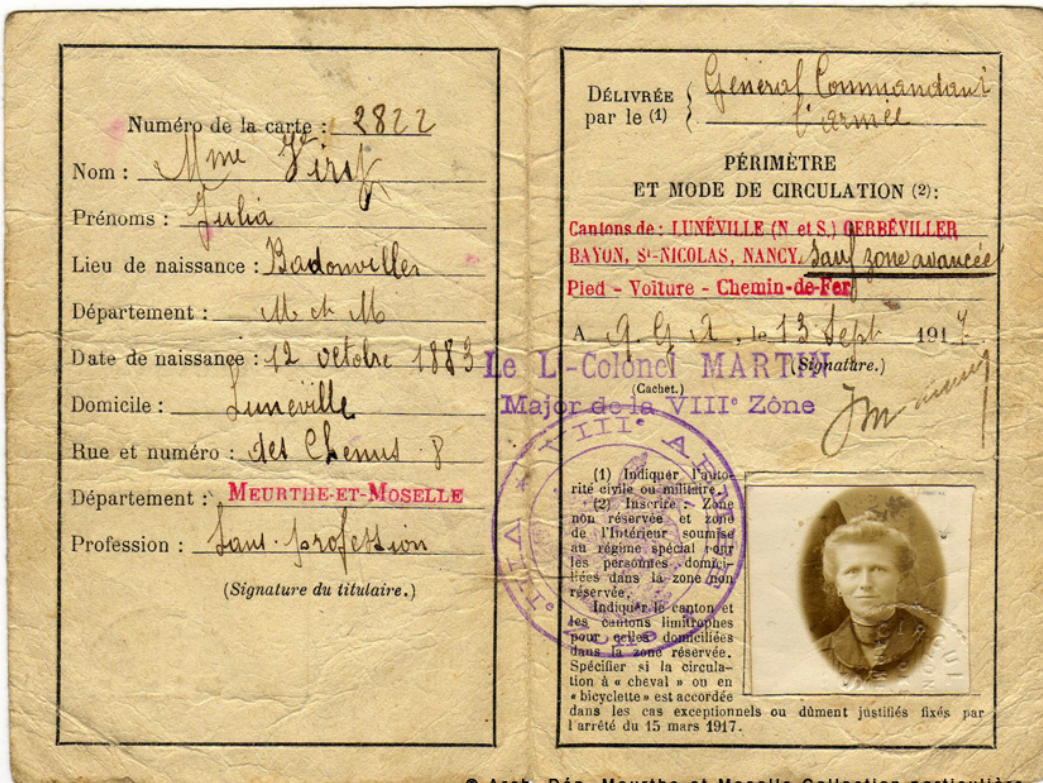 Numéro de la carte : 2822
Nom : Mme
Prénoms : Julia
Lieu de naissance : Badonviller
Département : M et M
Date de naissance : 12 octobre 1883
Domicile : Luneville
Rue et numéro : des 8
Département : MEURTHE-ET-MOSELLE
Profession : Sans profession
(Signature du titulaire.)
DÉLIVRÉE par le (1) { Général Commandant
l'armée
PÉRIMÈTRE
ET MODE DE CIRCULATION (2):
Cantons de : LUNÉVILLE (N et S.) GERBÉVILLER
BAYON, St-NICOLAS, NANCY. Sauf zone avancée
Pied - Voiture - Chemin-de-Fer
A Q. G. A, le 13 Sept 1917
(Signature.)
Le L-Colonel MARTIN
(Cachet.)
Major de la VIIIe Zône
VIIIe ARMÉE
(1) Indiquer l'auto-
rité civile ou militaire.
(2) Inscrire : Zone
non réservée et zone
de l'Intérieur soumise
au régime spécial pour
les personnes domici-
liées dans la zone non
réservée.
Indiquer le canton et
les cantons limitrophes
pour celles domiciliées
dans la zone réservée.
Spécifier si la circula-
tion à « cheval » ou en
« bicyclette » est accordée
dans les cas exceptionnels ou dûment justifiés fixés par
l'arrêté du 15 mars 1917.
© Arch. Dép. Meurthe et Moselle Collection particulière